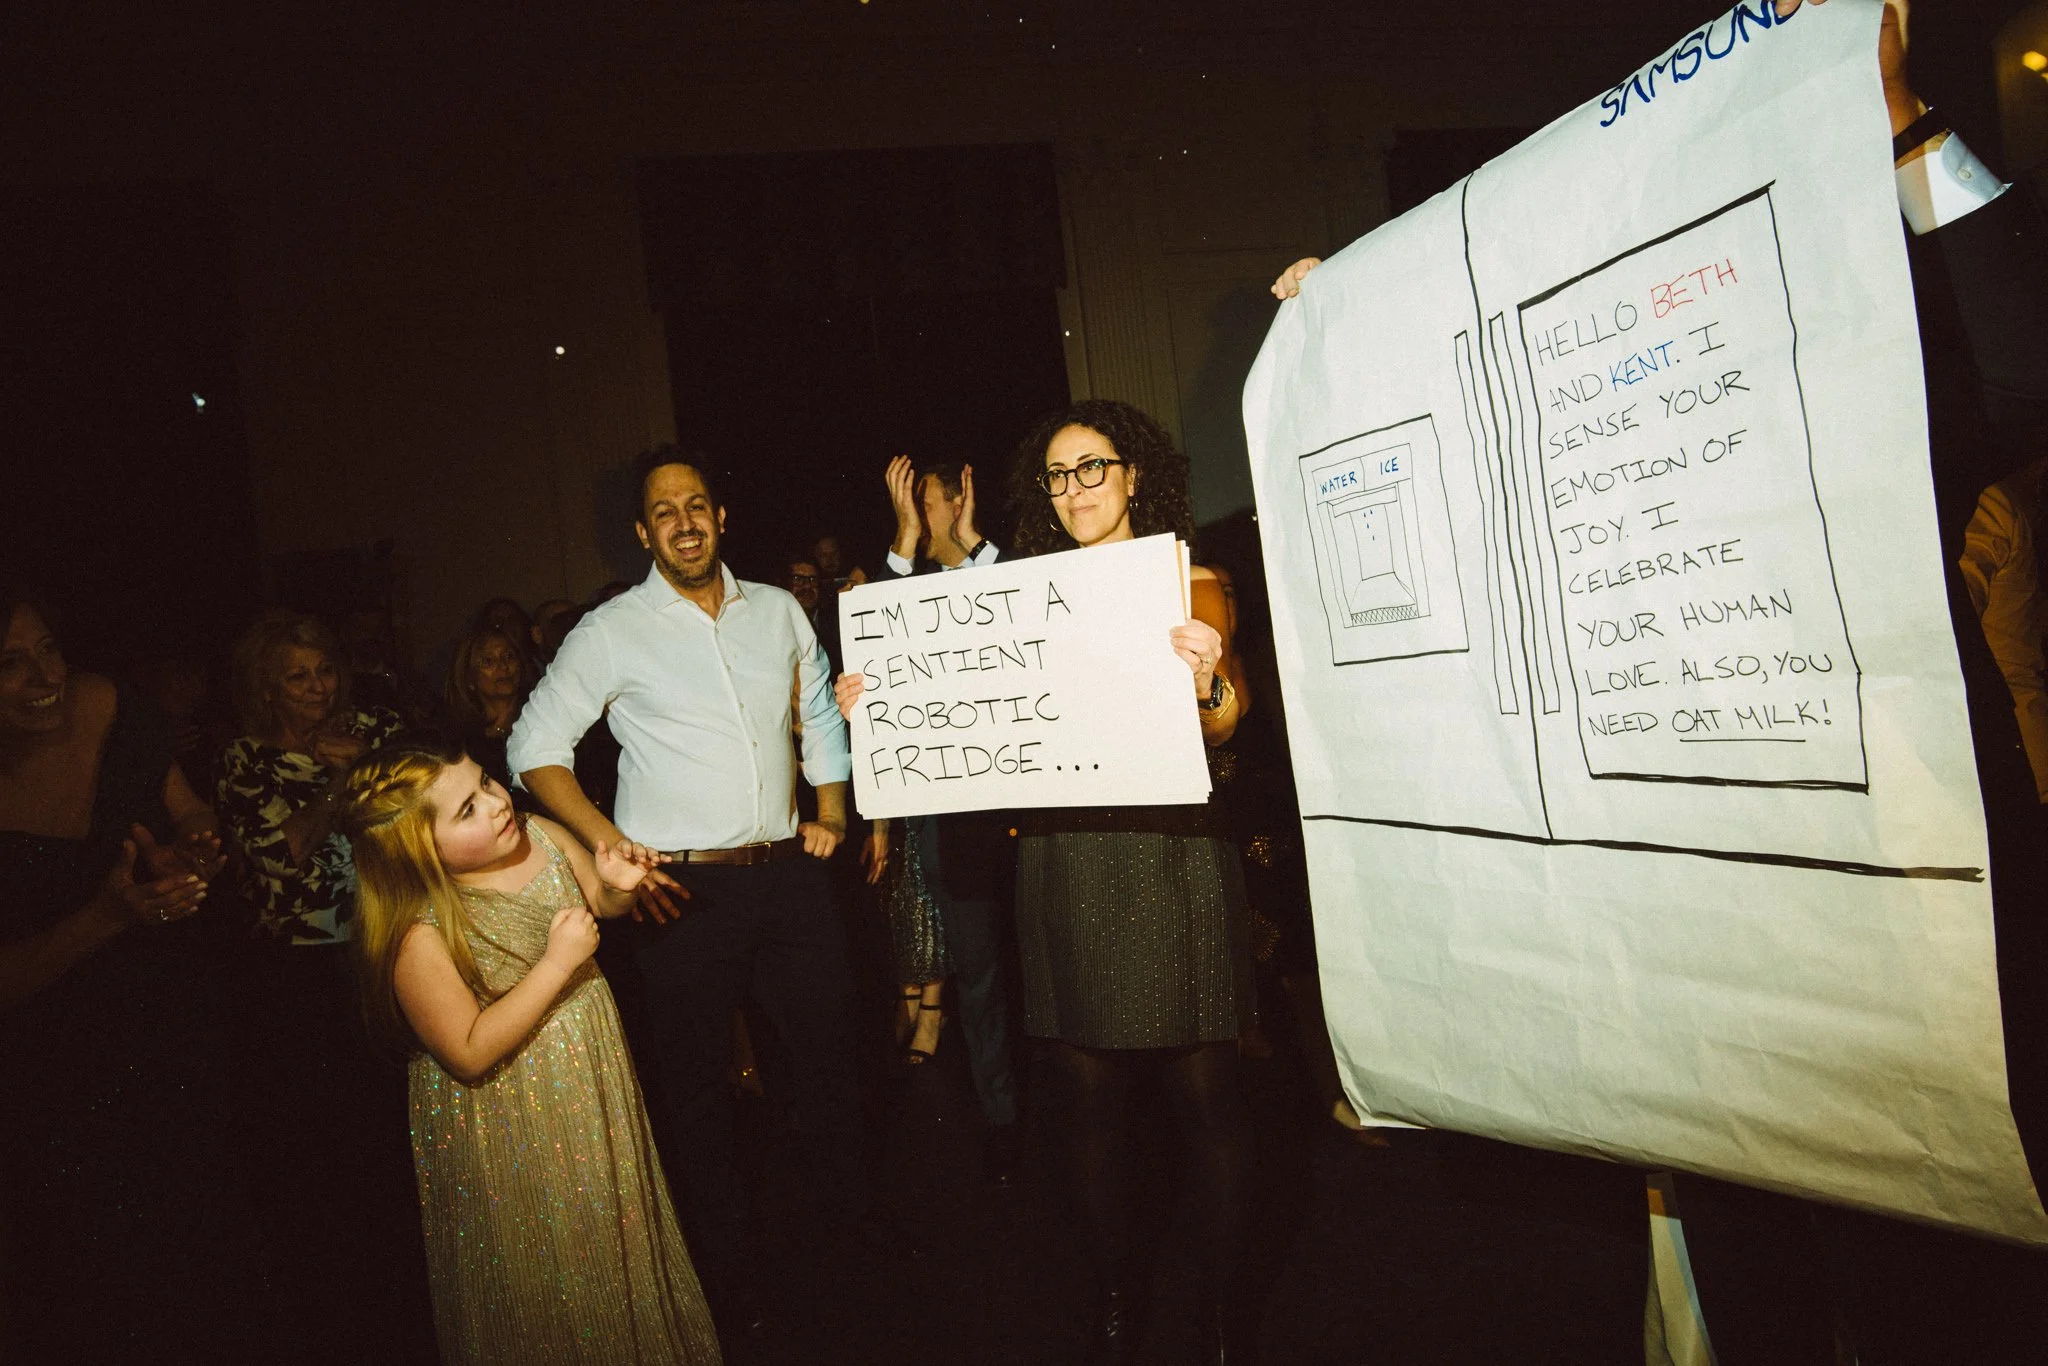 I'M JUST A
SENTIENT
ROBOTIC
FRIDGE...
SAMSUNG
WATER ICE
HELLO BETH
AND KENT. I
SENSE YOUR
EMOTION OF
JOY. I
CELEBRATE
YOUR HUMAN
LOVE. ALSO, YOU
NEED OAT MILK!